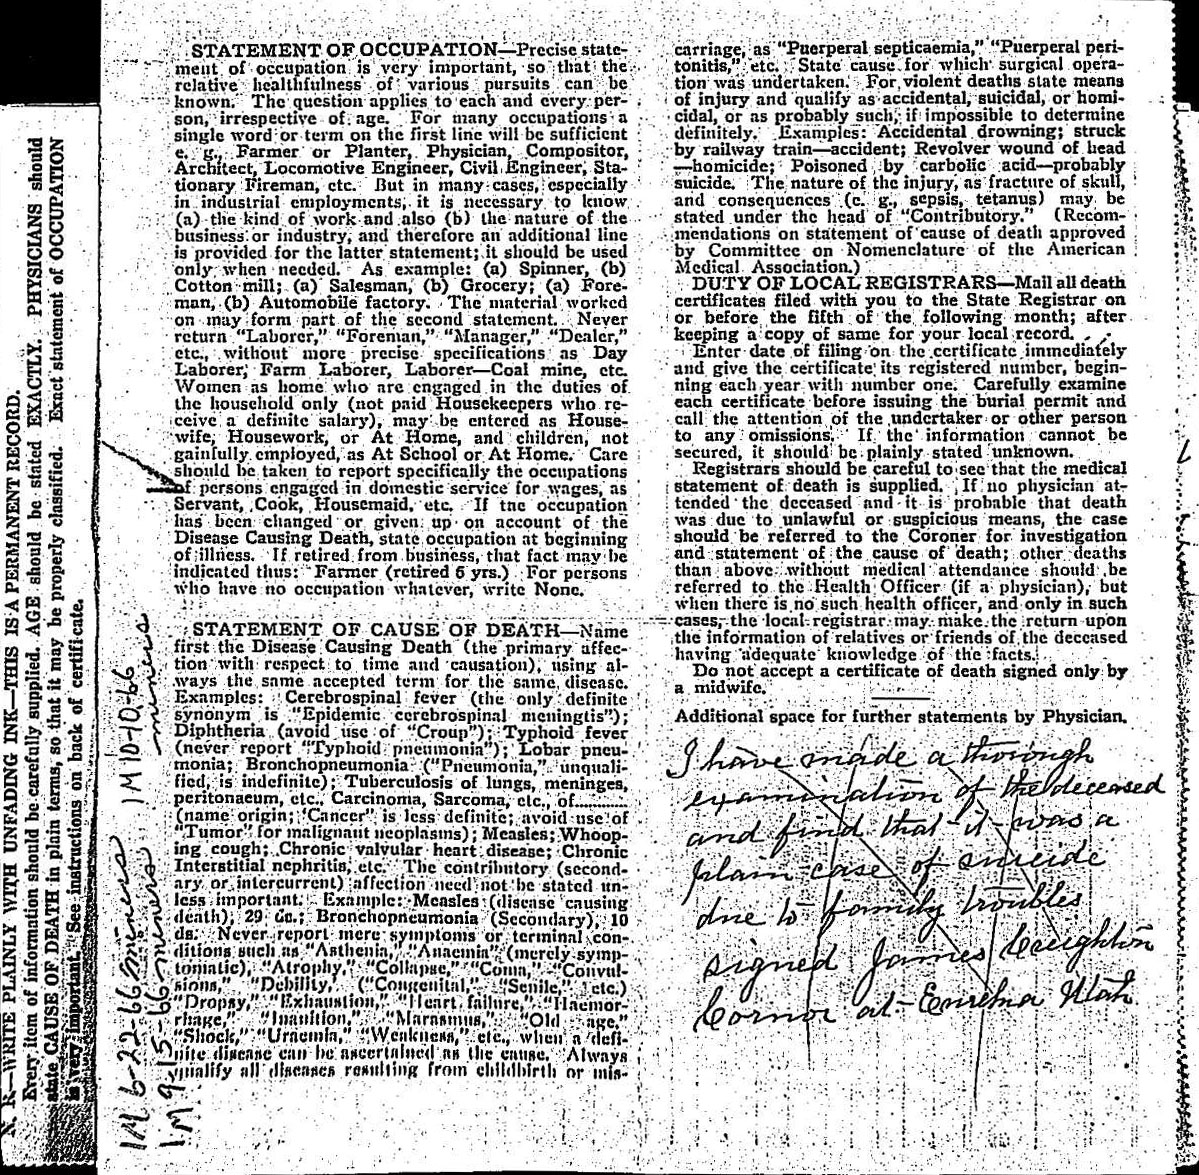 STATEMENT OF OCCUPATION—Precise state-
ment of occupation is very important, so that the
relative healthfulness of various pursuits can be
known. The question applies to each and every per-
son, irrespective of age. For many occupations a
single word or term on the first line will be sufficient
e. g., Farmer or Planter, Physician, Compositor,
Architect, Locomotive Engineer, Civil Engineer, Sta-
tionary Fireman, etc. But in many cases, especially
in industrial employments, it is necessary to know
(a) the kind of work and also (b) the nature of the
business or industry, and therefore an additional line
is provided for the latter statement; it should be used
only when needed. As example: (a) Spinner, (b)
Cotton mill; (a) Salesman, (b) Grocery; (a) Fore-
man, (b) Automobile factory. The material worked
on may form part of the second statement. Never
return "Laborer," "Foreman," "Manager," "Dealer,"
etc., without more precise specifications as Day
Laborer, Farm Laborer, Laborer—Coal mine, etc.
Women as home who are engaged in the duties of
the household only (not paid Housekeepers who re-
ceive a definite salary), may be entered as House-
wife, Housework, or At Home, and children, not
gainfully employed, as At School or At Home. Care
should be taken to report specifically the occupations
of persons engaged in domestic service for wages, as
Servant, Cook, Housemaid, etc. If the occupation
has been changed or given up on account of the
Disease Causing Death, state occupation at beginning
of illness. If retired from business, that fact may be
indicated thus: Farmer (retired 6 yrs.) For persons
who have no occupation whatever, write None.
STATEMENT OF CAUSE OF DEATH—Name
first the Disease Causing Death (the primary affec-
tion with respect to time and causation), using al-
ways the same accepted term for the same disease.
Examples: Cerebrospinal fever (the only definite
synonym is "Epidemic cerebrospinal meningtis");
Diphtheria (avoid use of "Croup"); Typhoid fever
(never report "Typhoid pneumonia"); Lobar pneu-
monia; Bronchopneumonia ("Pneumonia," unquali-
fied, is indefinite); Tuberculosis of lungs, meninges,
peritonaeum, etc., Carcinoma, Sarcoma, etc., of............
(name origin; "Cancer" is less definite; avoid use of
"Tumor" for malignant neoplasms); Measles; Whoop-
ing cough; Chronic valvular heart disease; Chronic
Interstitial nephritis, etc. The contributory (second-
ary or intercurrent) affection need not be stated un-
less important. Example: Measles (disease causing
death), 29 ds.; Bronchopneumonia (Secondary), 10
ds. Never report mere symptoms or terminal con-
ditions such as "Asthenia," "Anaemia" (merely symp-
tomatic), "Atrophy," "Collapse," "Coma," "Convul-
sions," "Debility," ("Congenital," "Senile," etc.)
"Dropsy," "Exhaustion," "Heart failure," "Haemor-
rhage," "Inanition," "Marasmus," "Old age,"
"Shock," "Uraemia," "Weakness," etc., when a defi-
nite disease can be ascertained as the cause. Always
qualify all diseases resulting from childbirth or mis-
carriage, as "Puerperal septicaemia," "Puerperal peri-
tonitis," etc. State cause for which surgical opera-
tion was undertaken. For violent deaths state means
of injury and qualify as accidental, suicidal, or homi-
cidal, or as probably such, if impossible to determine
definitely. Examples: Accidental drowning; struck
by railway train—accident; Revolver wound of head
—homicide; Poisoned by carbolic acid—probably
suicide. The nature of the injury, as fracture of skull,
and consequences (e. g., sepsis, tetanus) may be
stated under the head of "Contributory." (Recom-
mendations on statement of cause of death approved
by Committee on Nomenclature of the American
Medical Association.)
DUTY OF LOCAL REGISTRARS—Mail all death
certificates filed with you to the State Registrar on
or before the fifth of the following month; after
keeping a copy of same for your local record.
Enter date of filing on the certificate immediately
and give the certificate its registered number, begin-
ning each year with number one. Carefully examine
each certificate before issuing the burial permit and
call the attention of the undertaker or other person
to any omissions. If the information cannot be
secured, it should be plainly stated unknown.
Registrars should be careful to see that the medical
statement of death is supplied. If no physician at-
tended the deceased and it is probable that death
was due to unlawful or suspicious means, the case
should be referred to the Coroner for investigation
and statement of the cause of death; other deaths
than above without medical attendance should be
referred to the Health Officer (if a physician), but
when there is no such health officer, and only in such
cases, the local registrar may make the return upon
the information of relatives or friends of the deceased
having adequate knowledge of the facts.
Do not accept a certificate of death signed only by
a midwife.
Additional space for further statements by Physician.
I have made a thorough
examination of the deceased
and find that it was a
plain case of suicide
due to family troubles
signed James Creighton
Cornor at Eureka Utah
N. B.—WRITE PLAINLY WITH UNFADING INK—THIS IS A PERMANENT RECORD.
Every item of information should be carefully supplied. AGE should be stated EXACTLY. PHYSICIANS should
state CAUSE OF DEATH in plain terms, so that it may be properly classified. Exact statement of OCCUPATION
is very important. See instructions on back of certificate.
1M 6-22-66 miners 1M 10-10-66
1M 9-15-66 miners miners